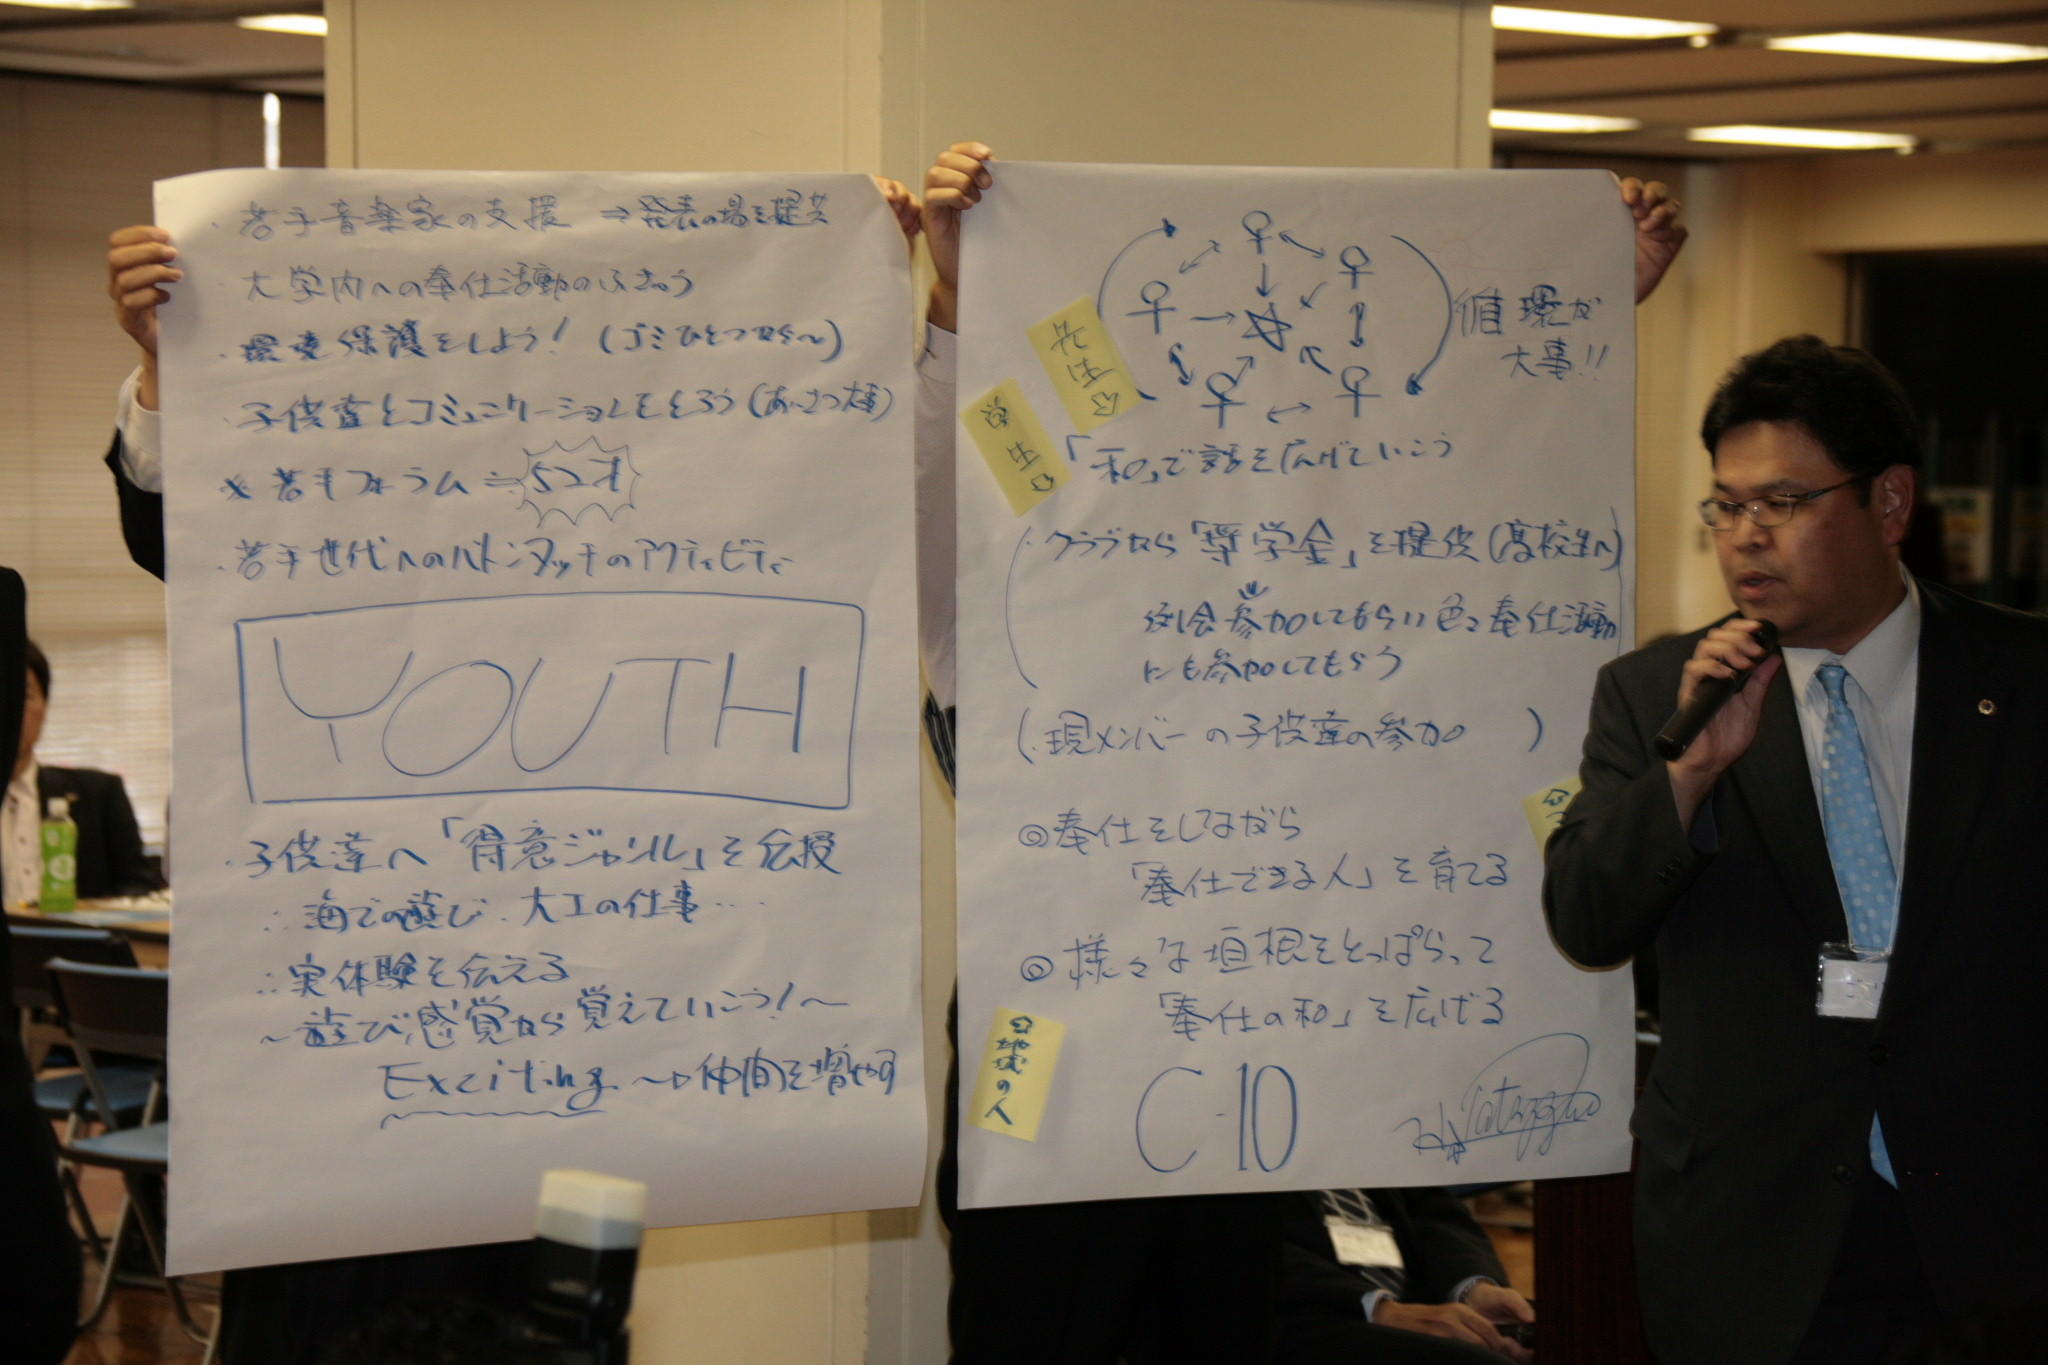 ・若手音楽家の支援 ⇒発表の場を提供
・大学内への奉仕活動のふきゅう
・環境保護をしよう！（ゴミひとつから〜）
・子供達とコミュニケーションをとろう（あいさつ大事）
※若手フォーラム≒52才
・若手世代へのバトンタッチのアクティビティ
YOUTH
・子供達へ「得意ジャンル」を伝授
∴海での遊び、大工の仕事…
∴実体験を伝える
〜遊び感覚から覚えていこう！〜
Exciting 〜→仲間を増やす
循環が
大事!!
先生
学生
「和」で話を広げていこう
（・クラブから「奨学金」を提供（高校生へ）
例会参加してもらい色々奉仕活動
にも参加してもらう
（・現メンバーの子供達の参加　）
◎奉仕をしながら
「奉仕できる人」を育てる
◎様々な垣根をとっぱらって
「奉仕の和」を広げる
地域の人
C-10